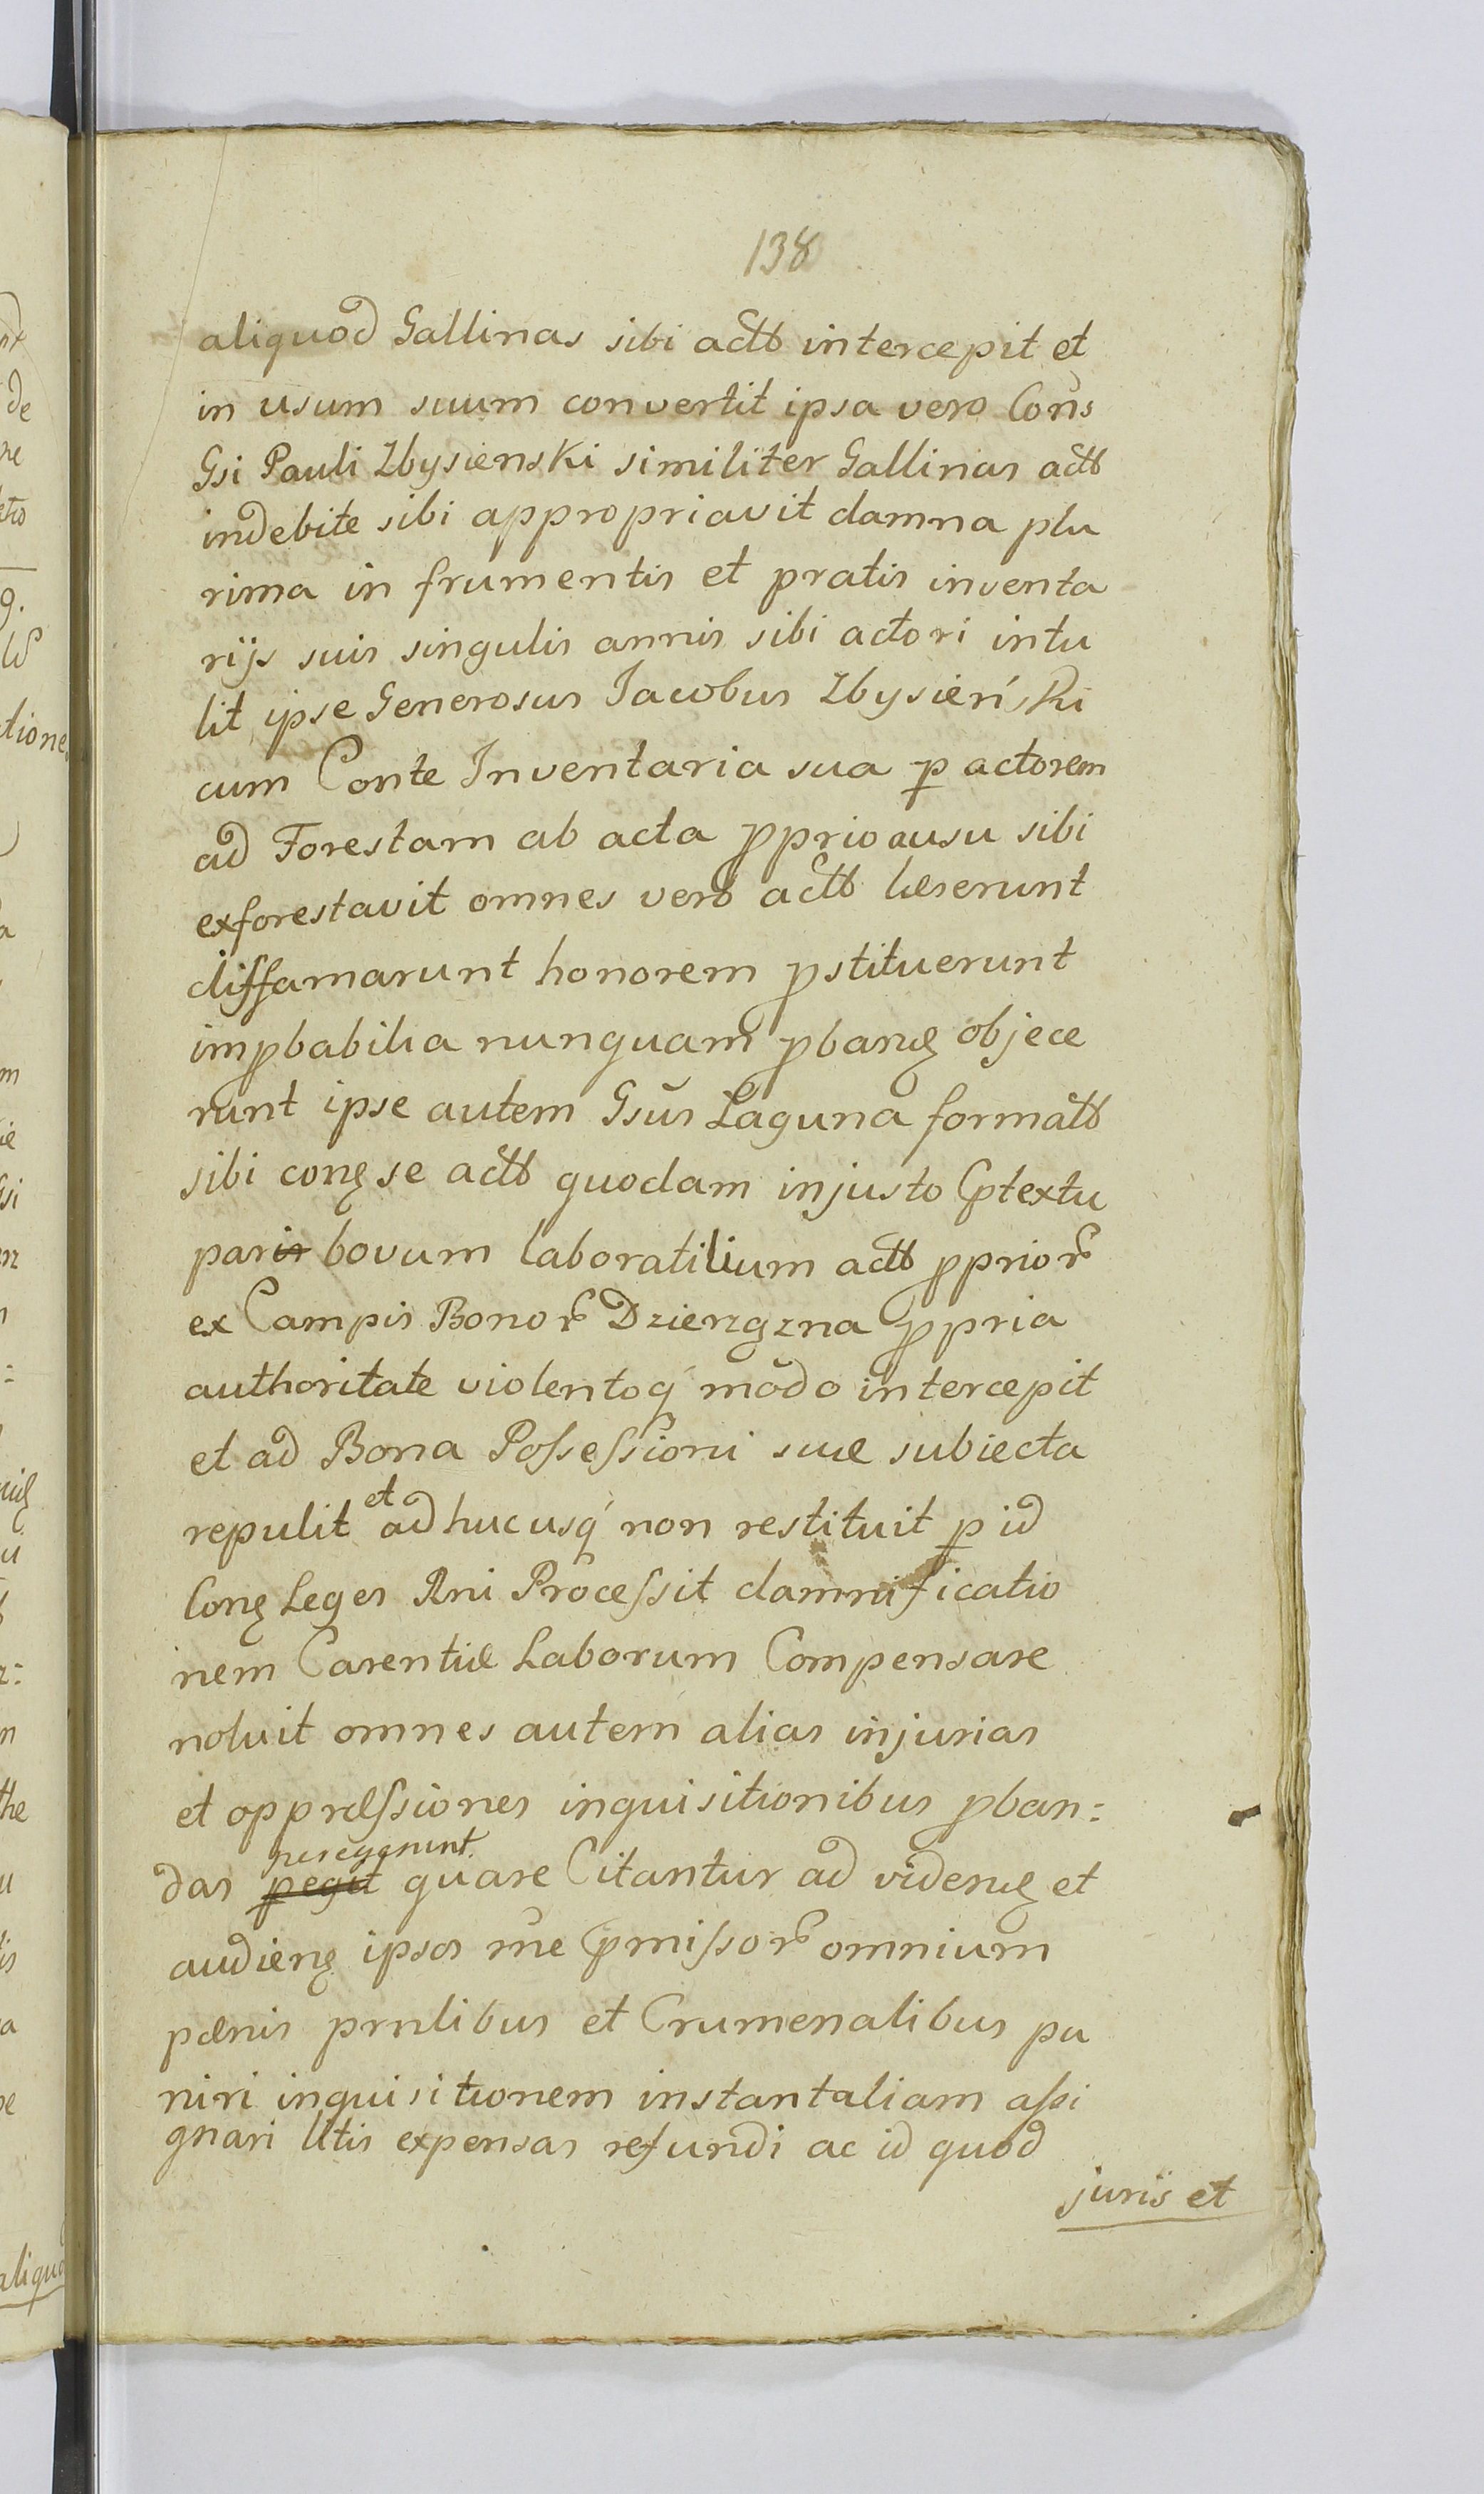 138
aliquod Gallinas sibi actb intercepit et
in usum suum convertit ipsa vero Cons
Gsi Pauli Zbysienski similiter Gallinas actb
indebite sibi appropriavit damna plu
rima in frumentis et pratis inventa
rijs suis singulis annis sibi actori intu
lit ipse Generosus Jacobus Zbysieński
cum Conte Inventaria sua p actorem
ad Forestam ab acta pprio ausu sibi
exforestavit omnes vero actb læserunt
diffamarunt honorem pstituerunt
impbabilia nunquam pbanę objece
runt ipse autem Gsus Laguna formatb
sibi conę se actb quodam injusto Ptextu
par bovum laboratilium actb pprior
ex Campis Bonor Dziengzna ppria
authoritate violentoq modo intercepit
et ad Bona Possessioni suæ subiecta
repulit et adhucusq non restituit p id
Conę Leges Rni Processit damnificatio
nem Carentiæ Laborum Compensare
noluit omnes autem alias injurias
et oppræssiones inquisitionibus pban:
das peregerunt quare Citantur ad videnę et
audienę ipsos rne Pmissor omnium
pænis pnlibus et Crumenalibus pu
niri inquisitionem instantaliam assi
gnari litis expensas refundi ac id quod
juris et